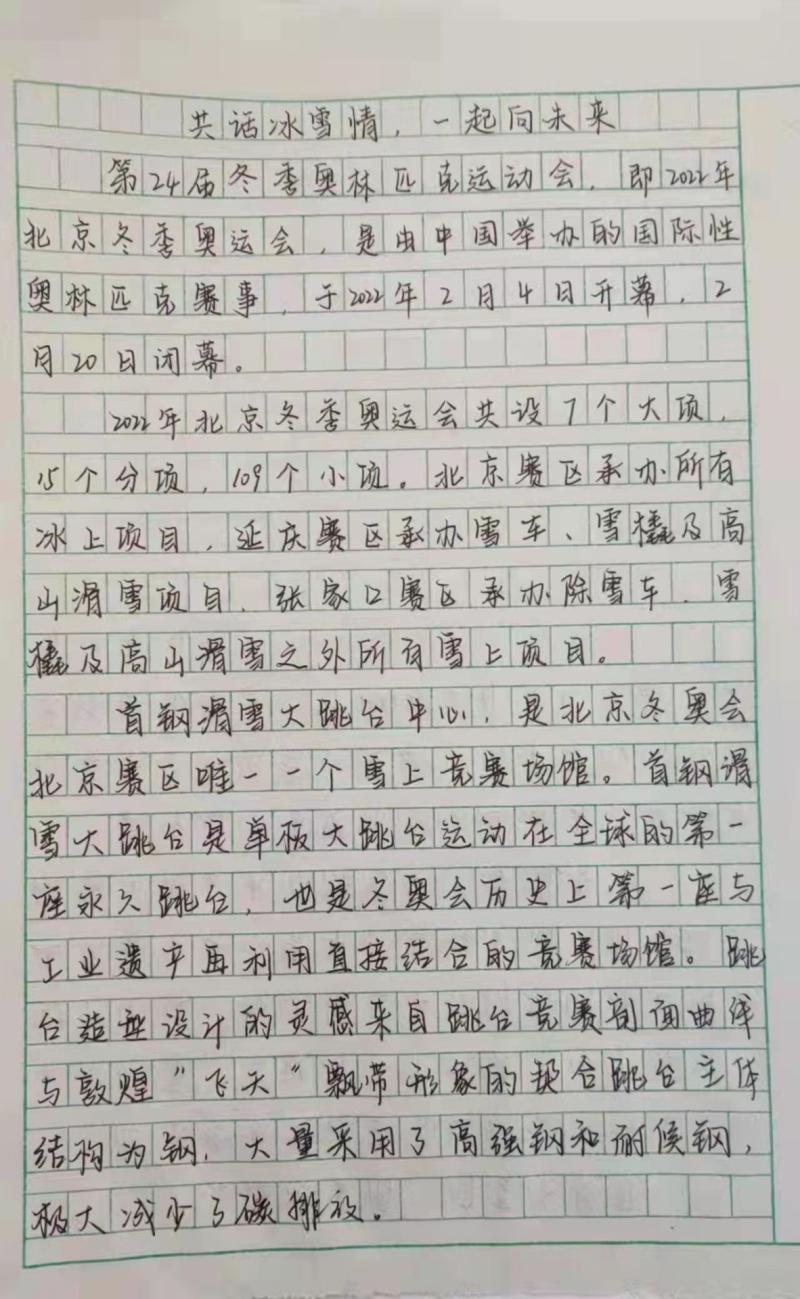 共话冰雪情，一起向未来
第24届冬季奥林匹克运动会，即2022年
北京冬季奥运会，是由中国举办的国际性
奥林匹克赛事，于2022年2月4日开幕，2
月20日闭幕。
2022年北京冬季奥运会共设7个大项，
15个分项，109个小项。北京赛区承办所有
冰上项目，延庆赛区承办雪车、雪橇及高
山滑雪项目，张家口赛区承办除雪车、雪
橇及高山滑雪之外所有雪上项目。
首钢滑雪大跳台中心，是北京冬奥会
北京赛区唯一一个雪上竞赛场馆。首钢滑
雪大跳台是单板大跳台运动在全球的第一
座永久跳台，也是冬奥会历史上第一座与
工业遗产再利用直接结合的竞赛场馆。跳
台造型设计的灵感来自跳台竞赛剖面曲线
与敦煌“飞天”飘带形象的契合跳台主体
结构为钢，大量采用了高强钢和耐候钢，
极大减少了碳排放。